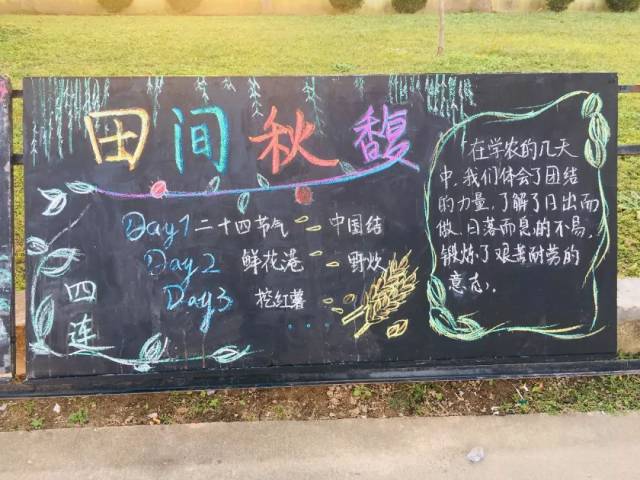 田间秋馥
Day1 二十四节气 中国结
Day2 鲜花港 野炊
Day3 挖红薯
...
四连
在学农的几天
中，我们体会了团结
的力量，了解了日出而
做、日落而息的不易，
锻炼了艰苦耐劳的
意志。